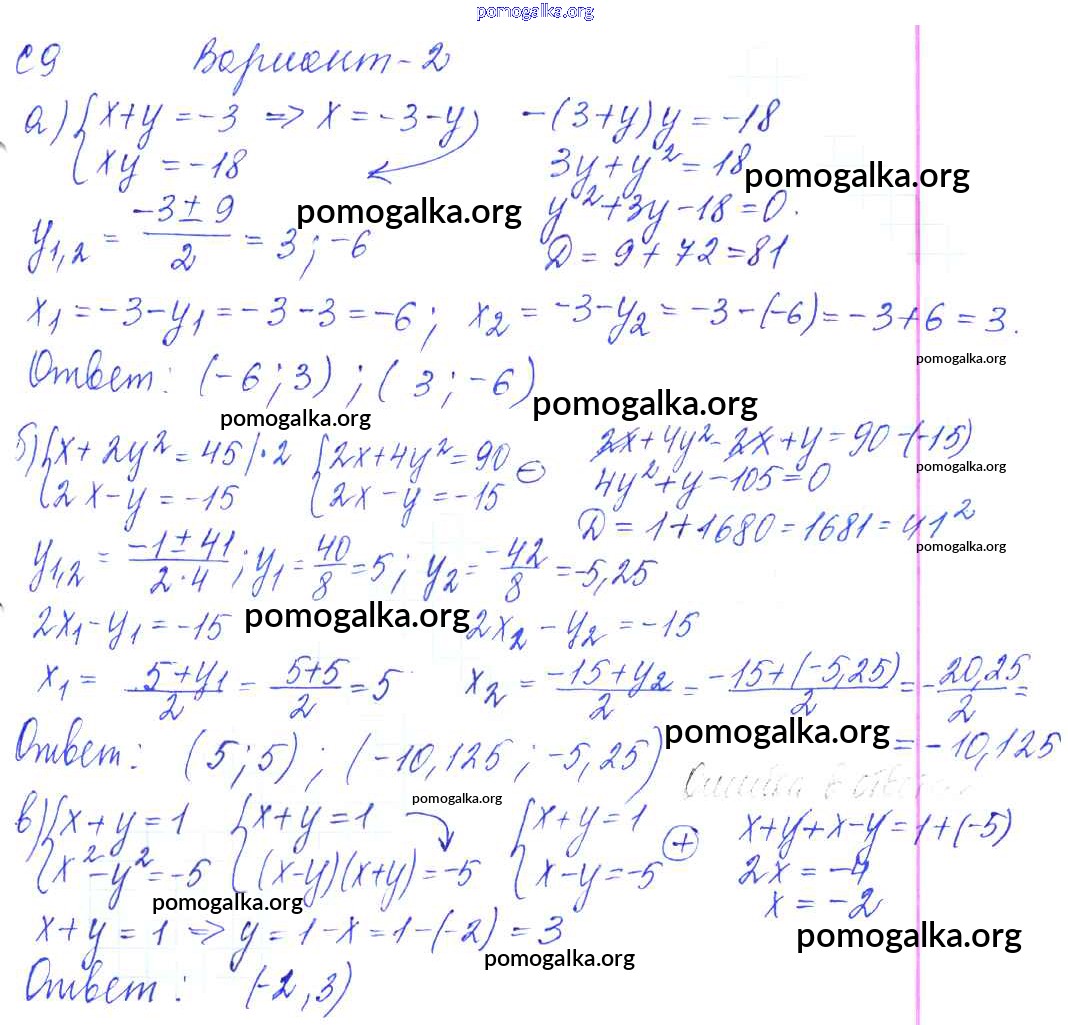 pomogalka.org
С9 Вариант-2
а) {x+y=-3 => x=-3-y) -(3+y)y=-18
{xy=-18 3y+y²=18 pomogalka.org
pomogalka.org y²+3y-18=0.
y1,2 = (-3±9)/2 = 3; -6 D=9+72=81
x1=-3-y1=-3-3=-6; x2=-3-y2=-3-(-6)=-3+6=3.
pomogalka.org
Ответ: (-6;3);(3;-6)
pomogalka.org pomogalka.org
б) {x+2y²=45|·2 {2x+4y²=90 ⊖ 2x+4y²-2x+y=90-(-15)
{2x-y=-15 {2x-y=-15 4y²+y-105=0 pomogalka.org
D=1+1680=1681=41²
pomogalka.org
y1,2 = (-1±41)/(2·4); y1=40/8=5; y2=-42/8=-5,25
2x1-y1=-15 pomogalka.org 2x2-y2=-15
x1 = (5+y1)/2 = (5+5)/2 = 5 x2 = (-15+y2)/2 = (-15+(-5,25))/2 = -20,25/2 =
pomogalka.org = -10,125
Ответ: (5;5); (-10,125; -5,25)
Ошибка в ответе
в) {x+y=1 {x+y=1 pomogalka.org {x+y=1 ⊕ x+y+x-y=1+(-5)
{x²-y²=-5 {(x-y)(x+y)=-5 {x-y=-5 2x=-4
pomogalka.org x=-2
x+y=1 => y=1-x=1-(-2)=3 pomogalka.org
pomogalka.org
Ответ: (-2,3)